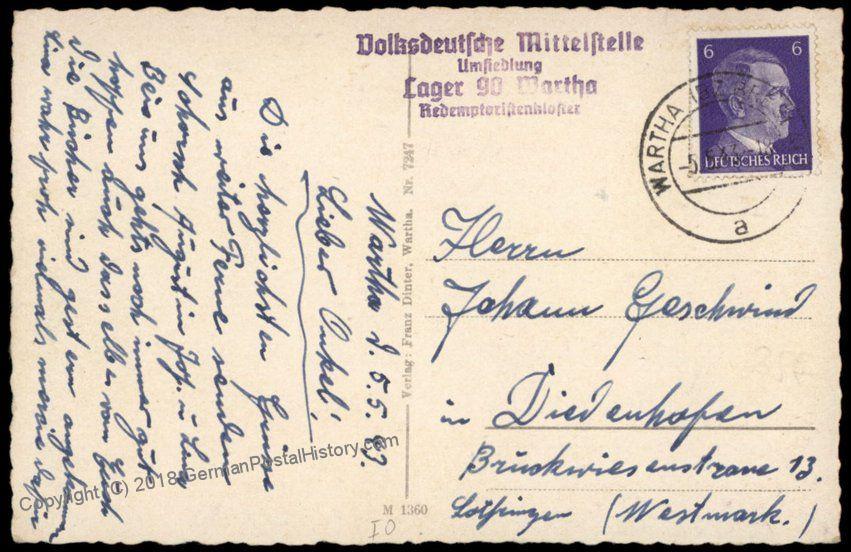 Volksdeutsche Mittelstelle
Umsiedlung
Lager 90 Wartha
Redemptoristenkloster
6 6
DEUTSCHES REICH
WARTHA
a
Wartha d. 5.5.43.
Lieber Onkel!
Die herzlichsten Grüsse
aus weiter Ferne senden
August u. Jos. u. Lina
Bei uns gehts noch immer gut
hoffen auch dasselbe von Euch
Die Bücher sind gestern angekommen
vielmals merci dafür
Verlag: Franz Dinter, Wartha. Nr. 7247
M 1360
Herrn
Johann Geschwind
in Diedenhofen
Bruckwiesenstrasse 13.
Lothringen (Westmark.)
Copyright (C) 2018 GermanPostalHistory.com